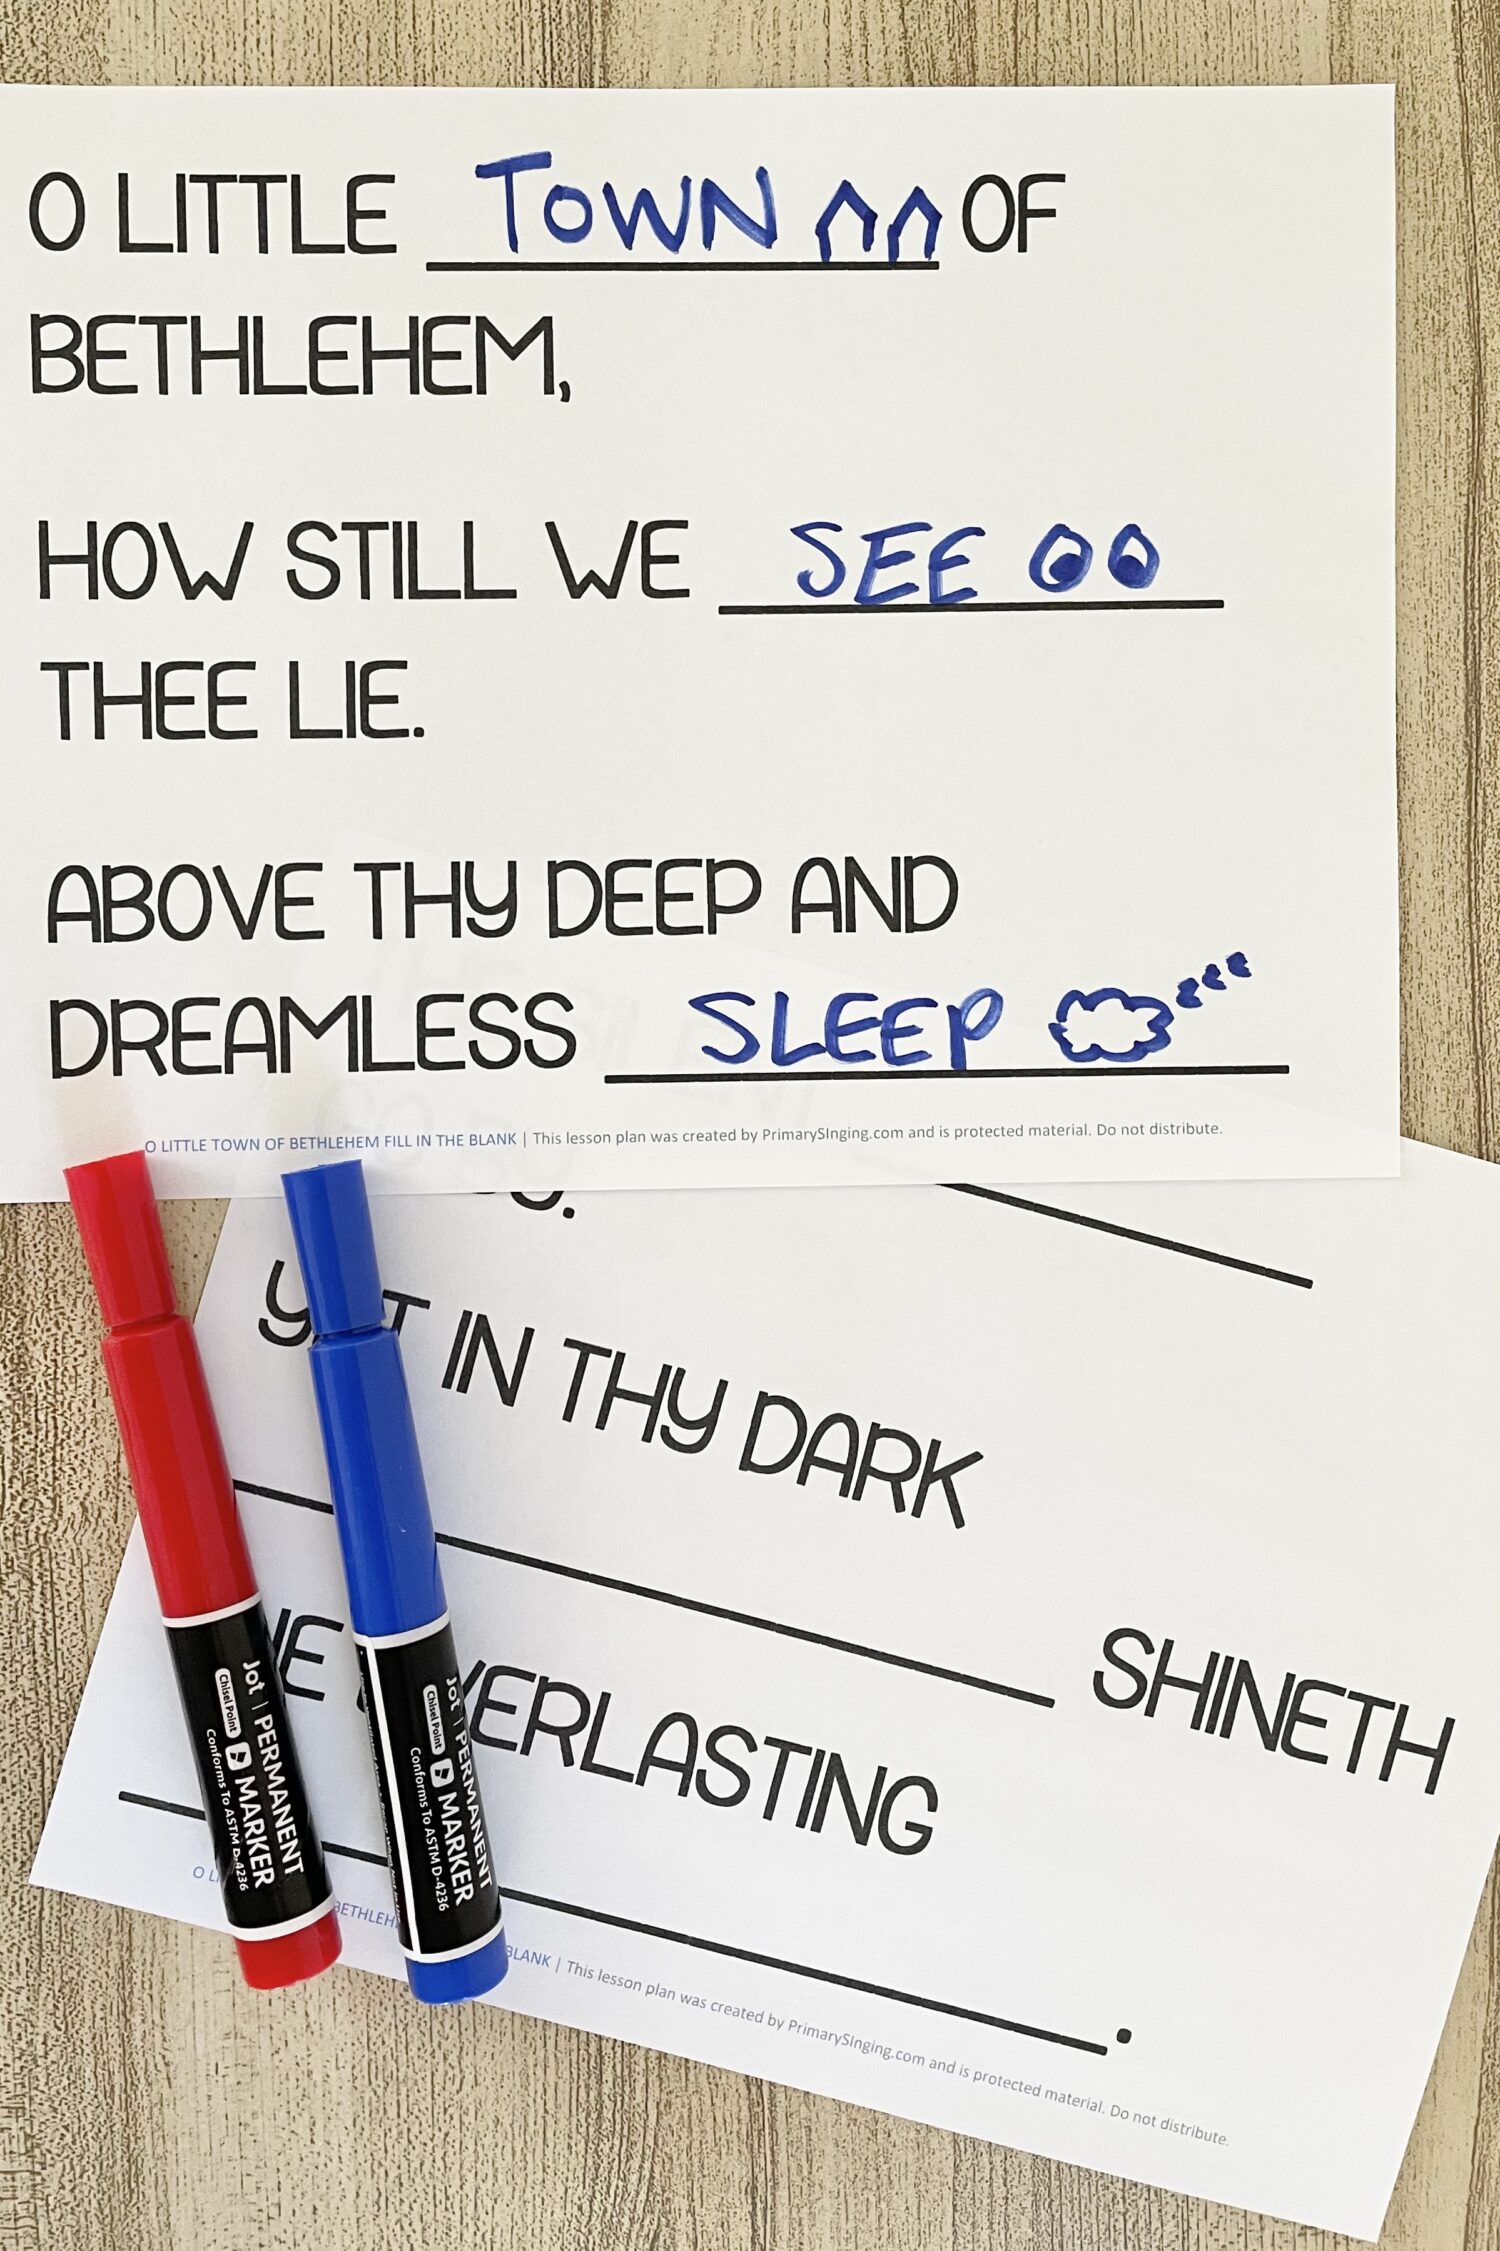 O LITTLE TOWN OF
BETHLEHEM,
HOW STILL WE SEE
THEE LIE.
ABOVE THY DEEP AND
DREAMLESS SLEEP
O LITTLE TOWN OF BETHLEHEM FILL IN THE BLANK | This lesson plan was created by PrimarySInging.com and is protected material. Do not distribute.
IN THY DARK
SHINETH
EVERLASTING
BLANK | This lesson plan was created by PrimarySInging.com and is protected material. Do not distribute.
Jot | PERMANENT
Chisel Point MARKER
Conforms To ASTM D-4236
Jot | PERMANENT
Chisel Point MARKER
Conforms To ASTM D-4236